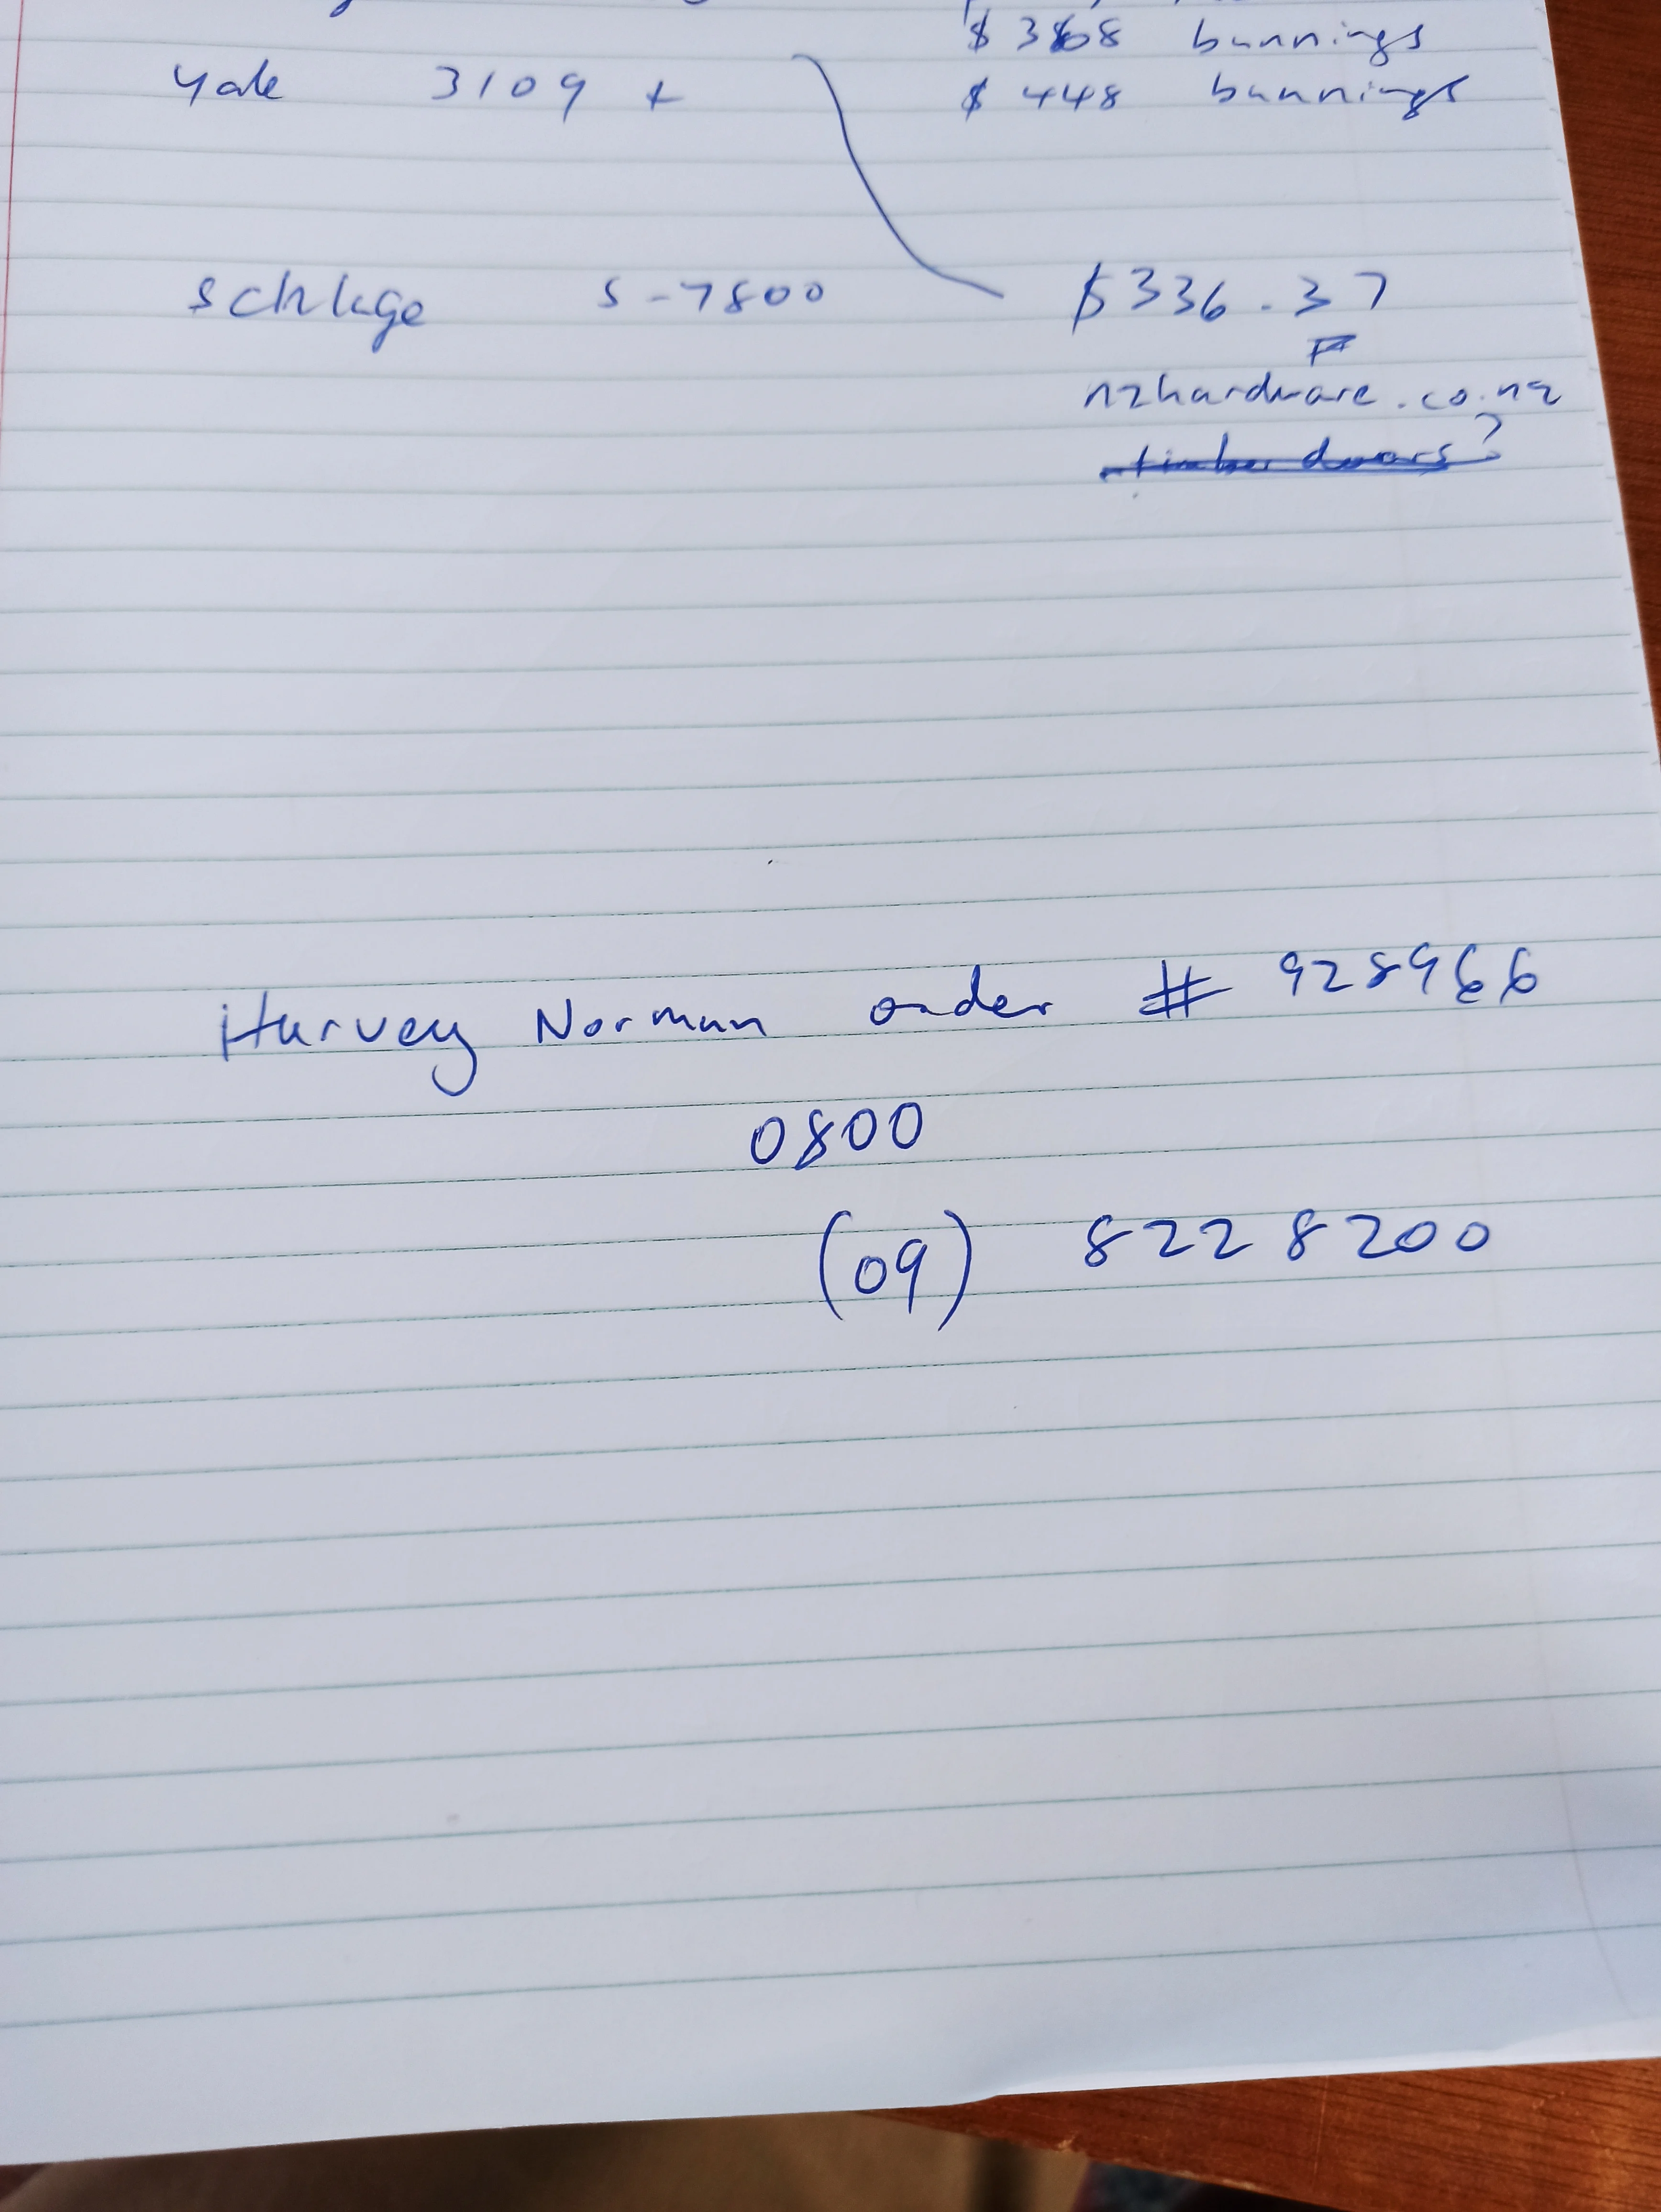 $ 368 bunnings
yale 3109 + $ 448 bunnings
schlage s-7800 $336.37
nzhardware.co.nz
timber doors?
Harvey Norman order # 928966
0800
(09) 822 8200